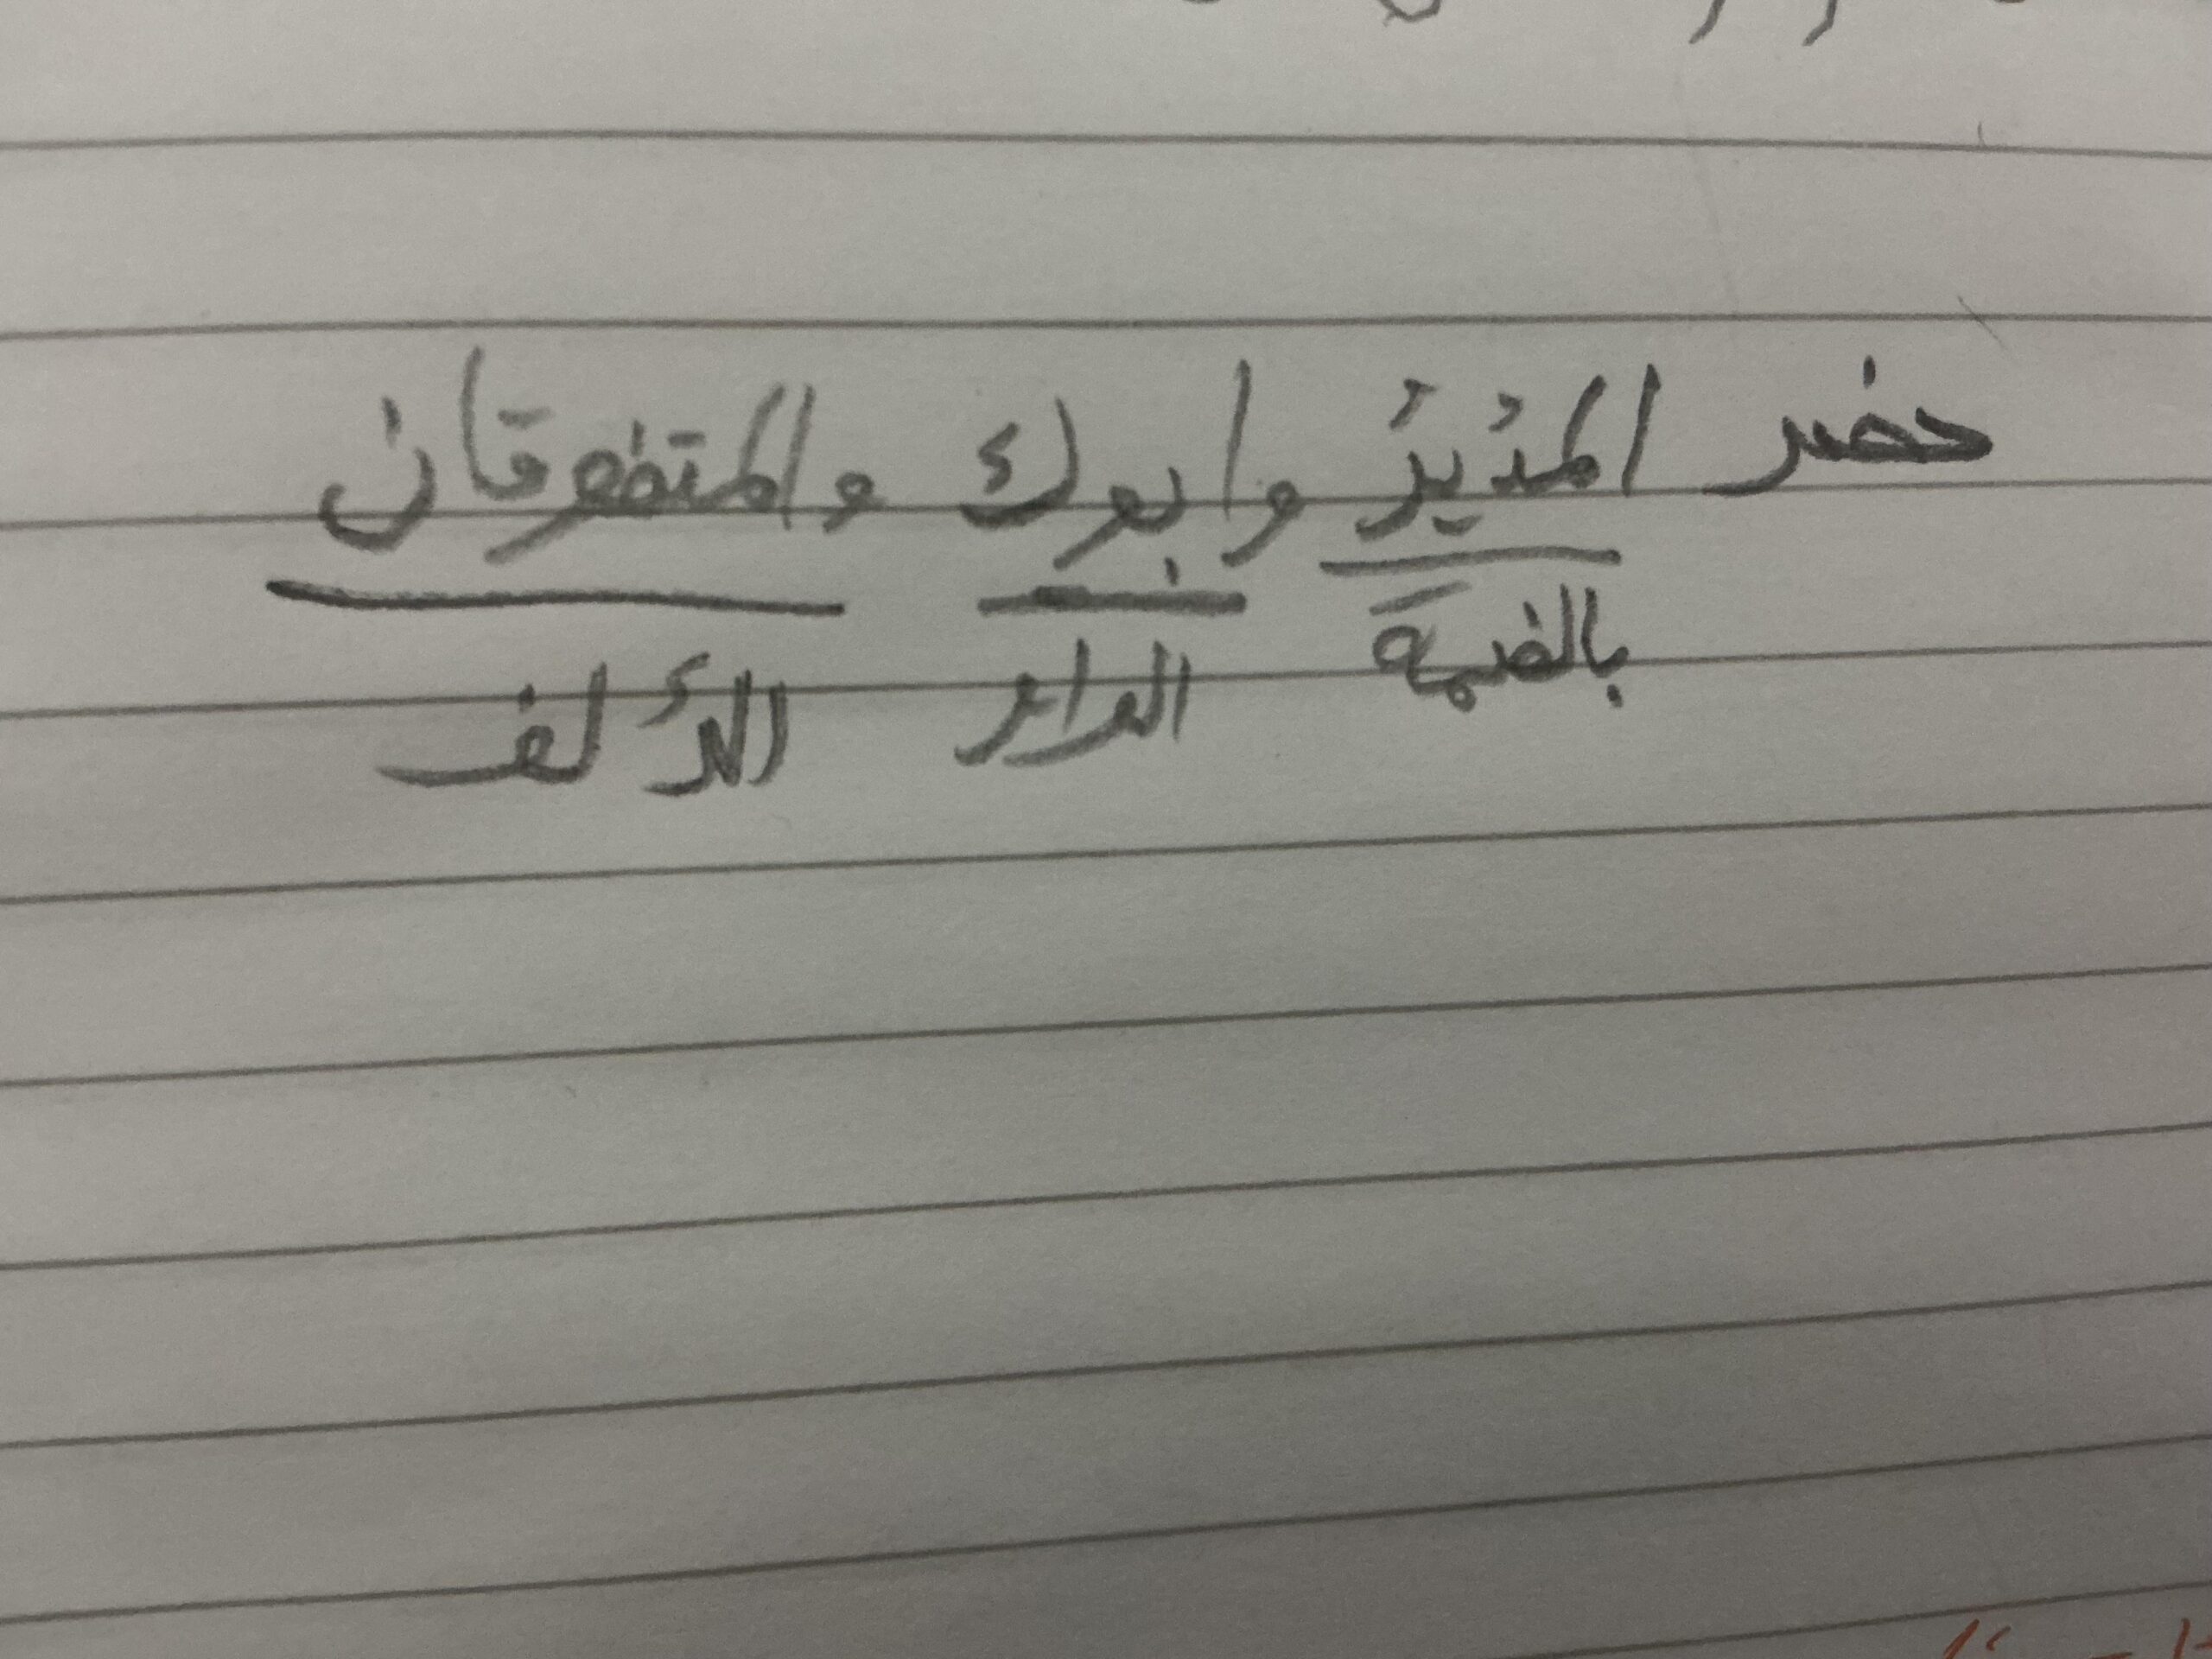 حضر المُديرُ وابوك والمتفوقان
بالضمة الواو الألف